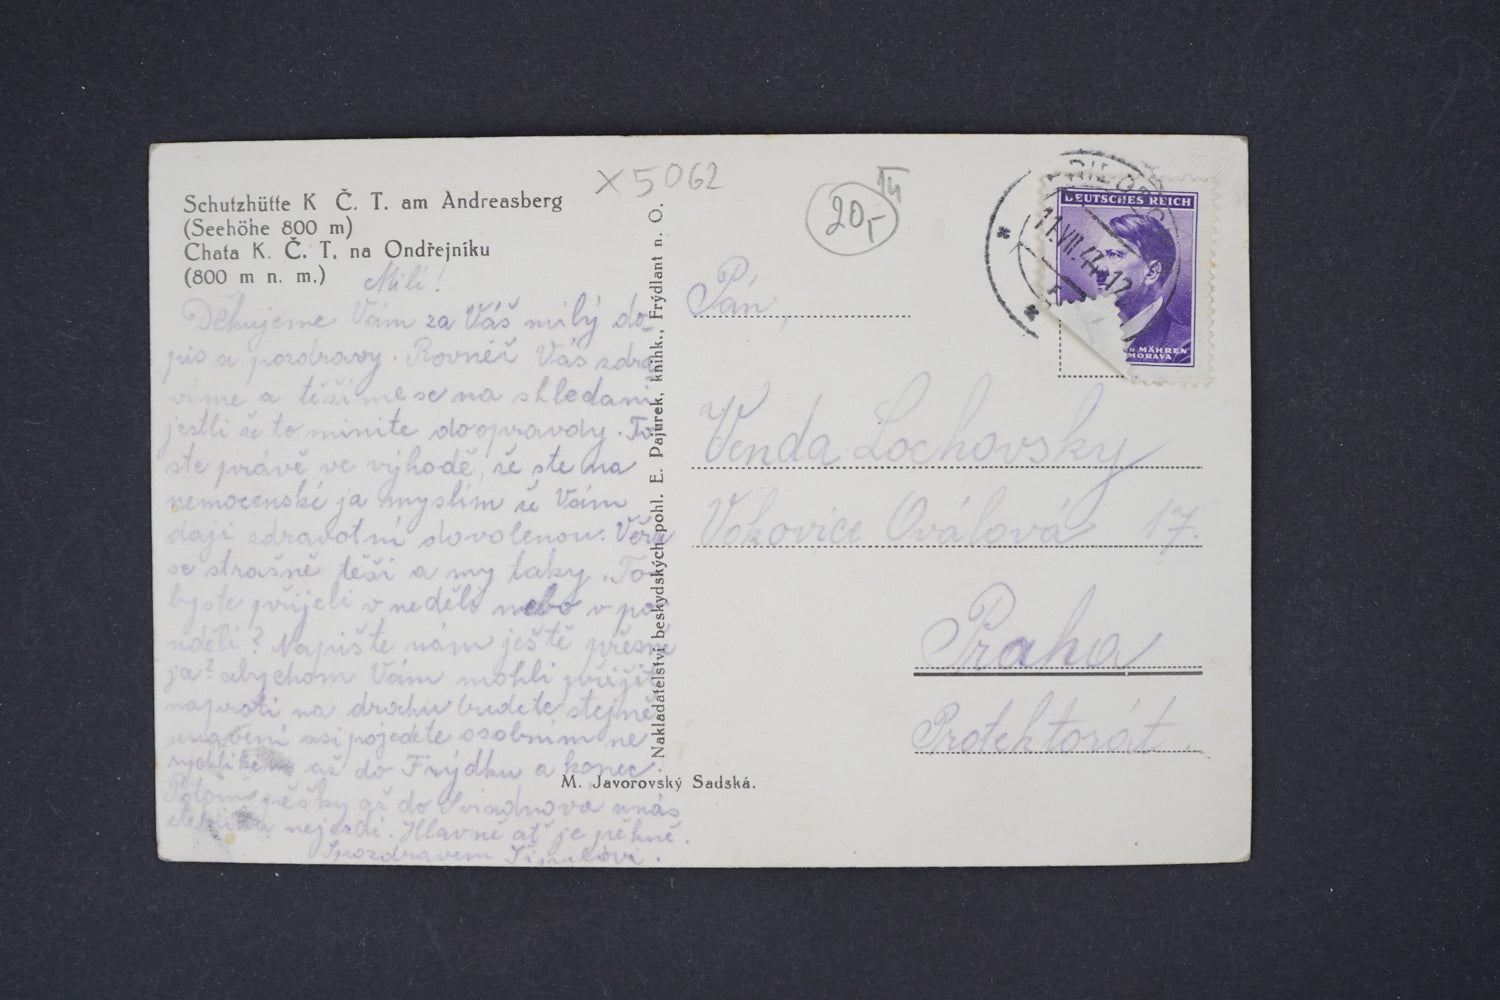 Schutzhütte K Č. T. am Andreasberg
(Seehöhe 800 m)
Chata K. Č. T. na Ondřejníku
(800 m n. m.)
Milí!
Děkujeme Vám za Váš milý do-
pis a pozdravy. Rovněž Vás zdra
víme a těšíme se na shledaní
jestli že to míníte doopravdy. To
ste právě ve výhodě, že ste na
nemocenské ja myslím že Vám
dají zdravotní dovolenou. Věra
se strašně těší a my taky. To
byste přijeli v neděli nebo v po
nděli? Napište nám ještě přesně
ja? abychom Vám mohli přijít
naproti na drahu budete stejně
unavení asi pojedete osobním ne
rychlíkem až do Frýdku a konec.
Potom pěšky až do Sviadnova unás
elektrika nejezdí. Hlavně ať je pěkně.
Spozdravem
Nakladatelství beskydských pohl. E. Pajurek, knihk., Frýdlant n. O.
M. Javorovský Sadská.
X5062
20,-
DEUTSCHES REICH
11.VII.44-12
MÄHREN
MORAVA
Pán,
Venda Lochovsky
Vokovice Oválová 17.
Praha
Protektorát.